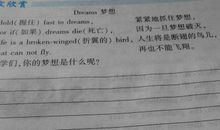 文欣赏
Dreams 梦想
Hold(握住) fast to dreams,
紧紧地抓住梦想,
or if(如果) dreams die(死亡),
因为一旦梦破灭,
ife is a broken-winged(折翼的) bird,
人生将是断翅的鸟儿,
at can not fly.
再也不能飞翔。
学们,你的梦想是什么呢?